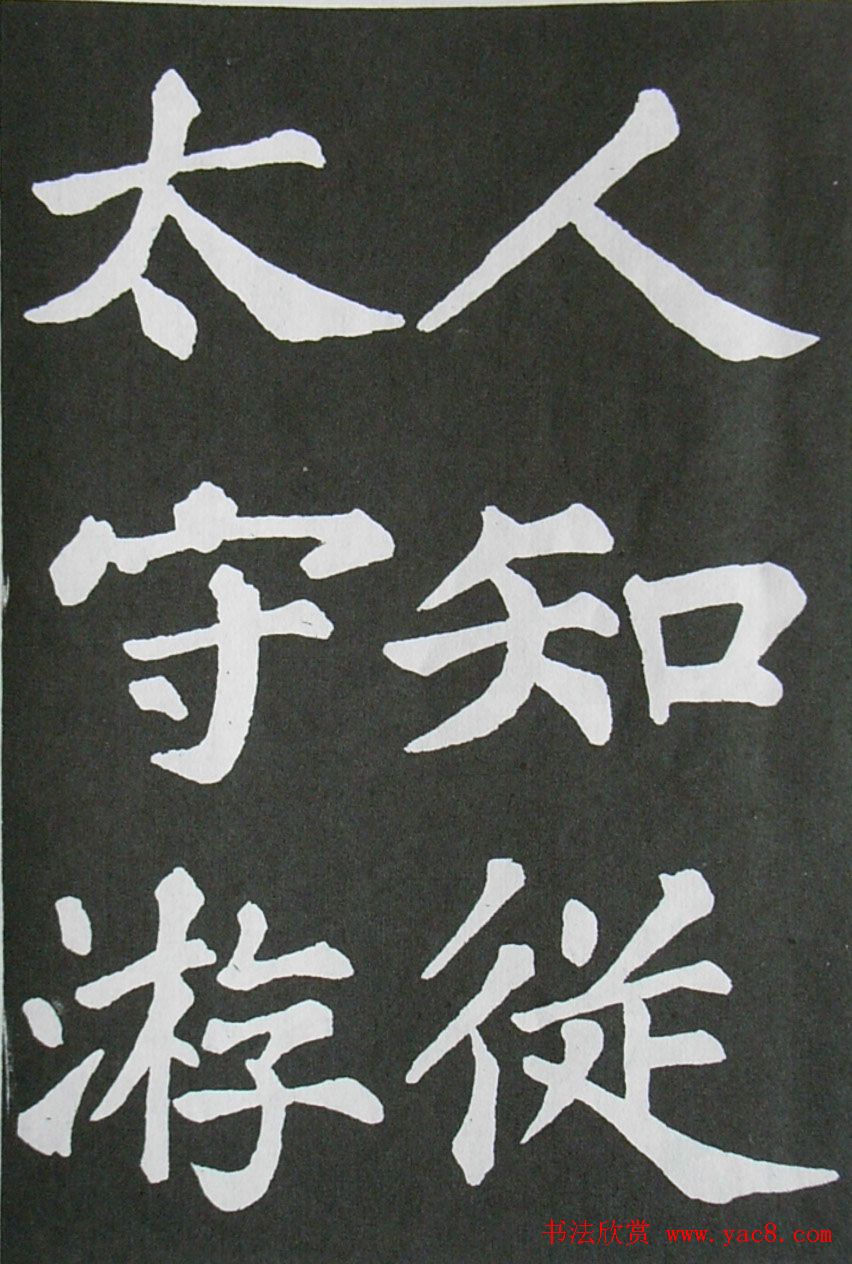 人知從
太守游
书法欣赏 www.yac8.com